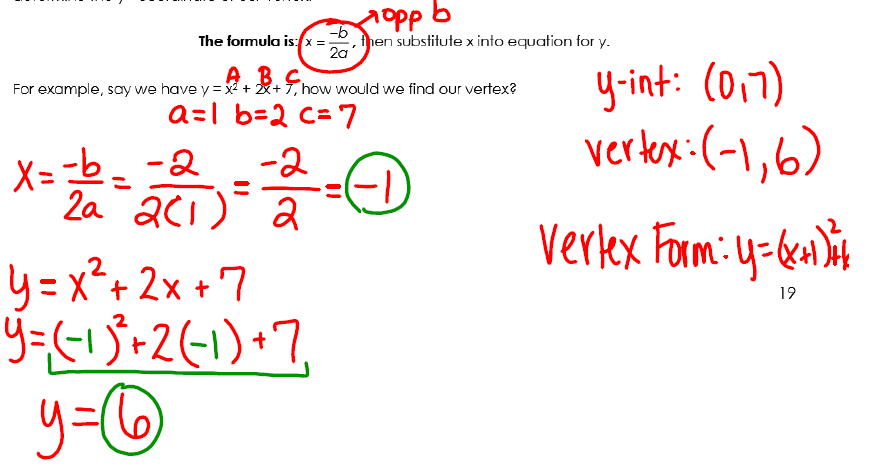 opp b
The formula is: x = -b/2a, then substitute x into equation for y.
A B C
For example, say we have y = x² + 2x + 7, how would we find our vertex?
a=1 b=2 c=7
x = -b/2a = -2/2(1) = -2/2 = -1
y = x² + 2x + 7
y = (-1)² + 2(-1) + 7
y = 6
y-int: (0,7)
vertex: (-1,6)
Vertex Form: y=(x+1)²+6
19